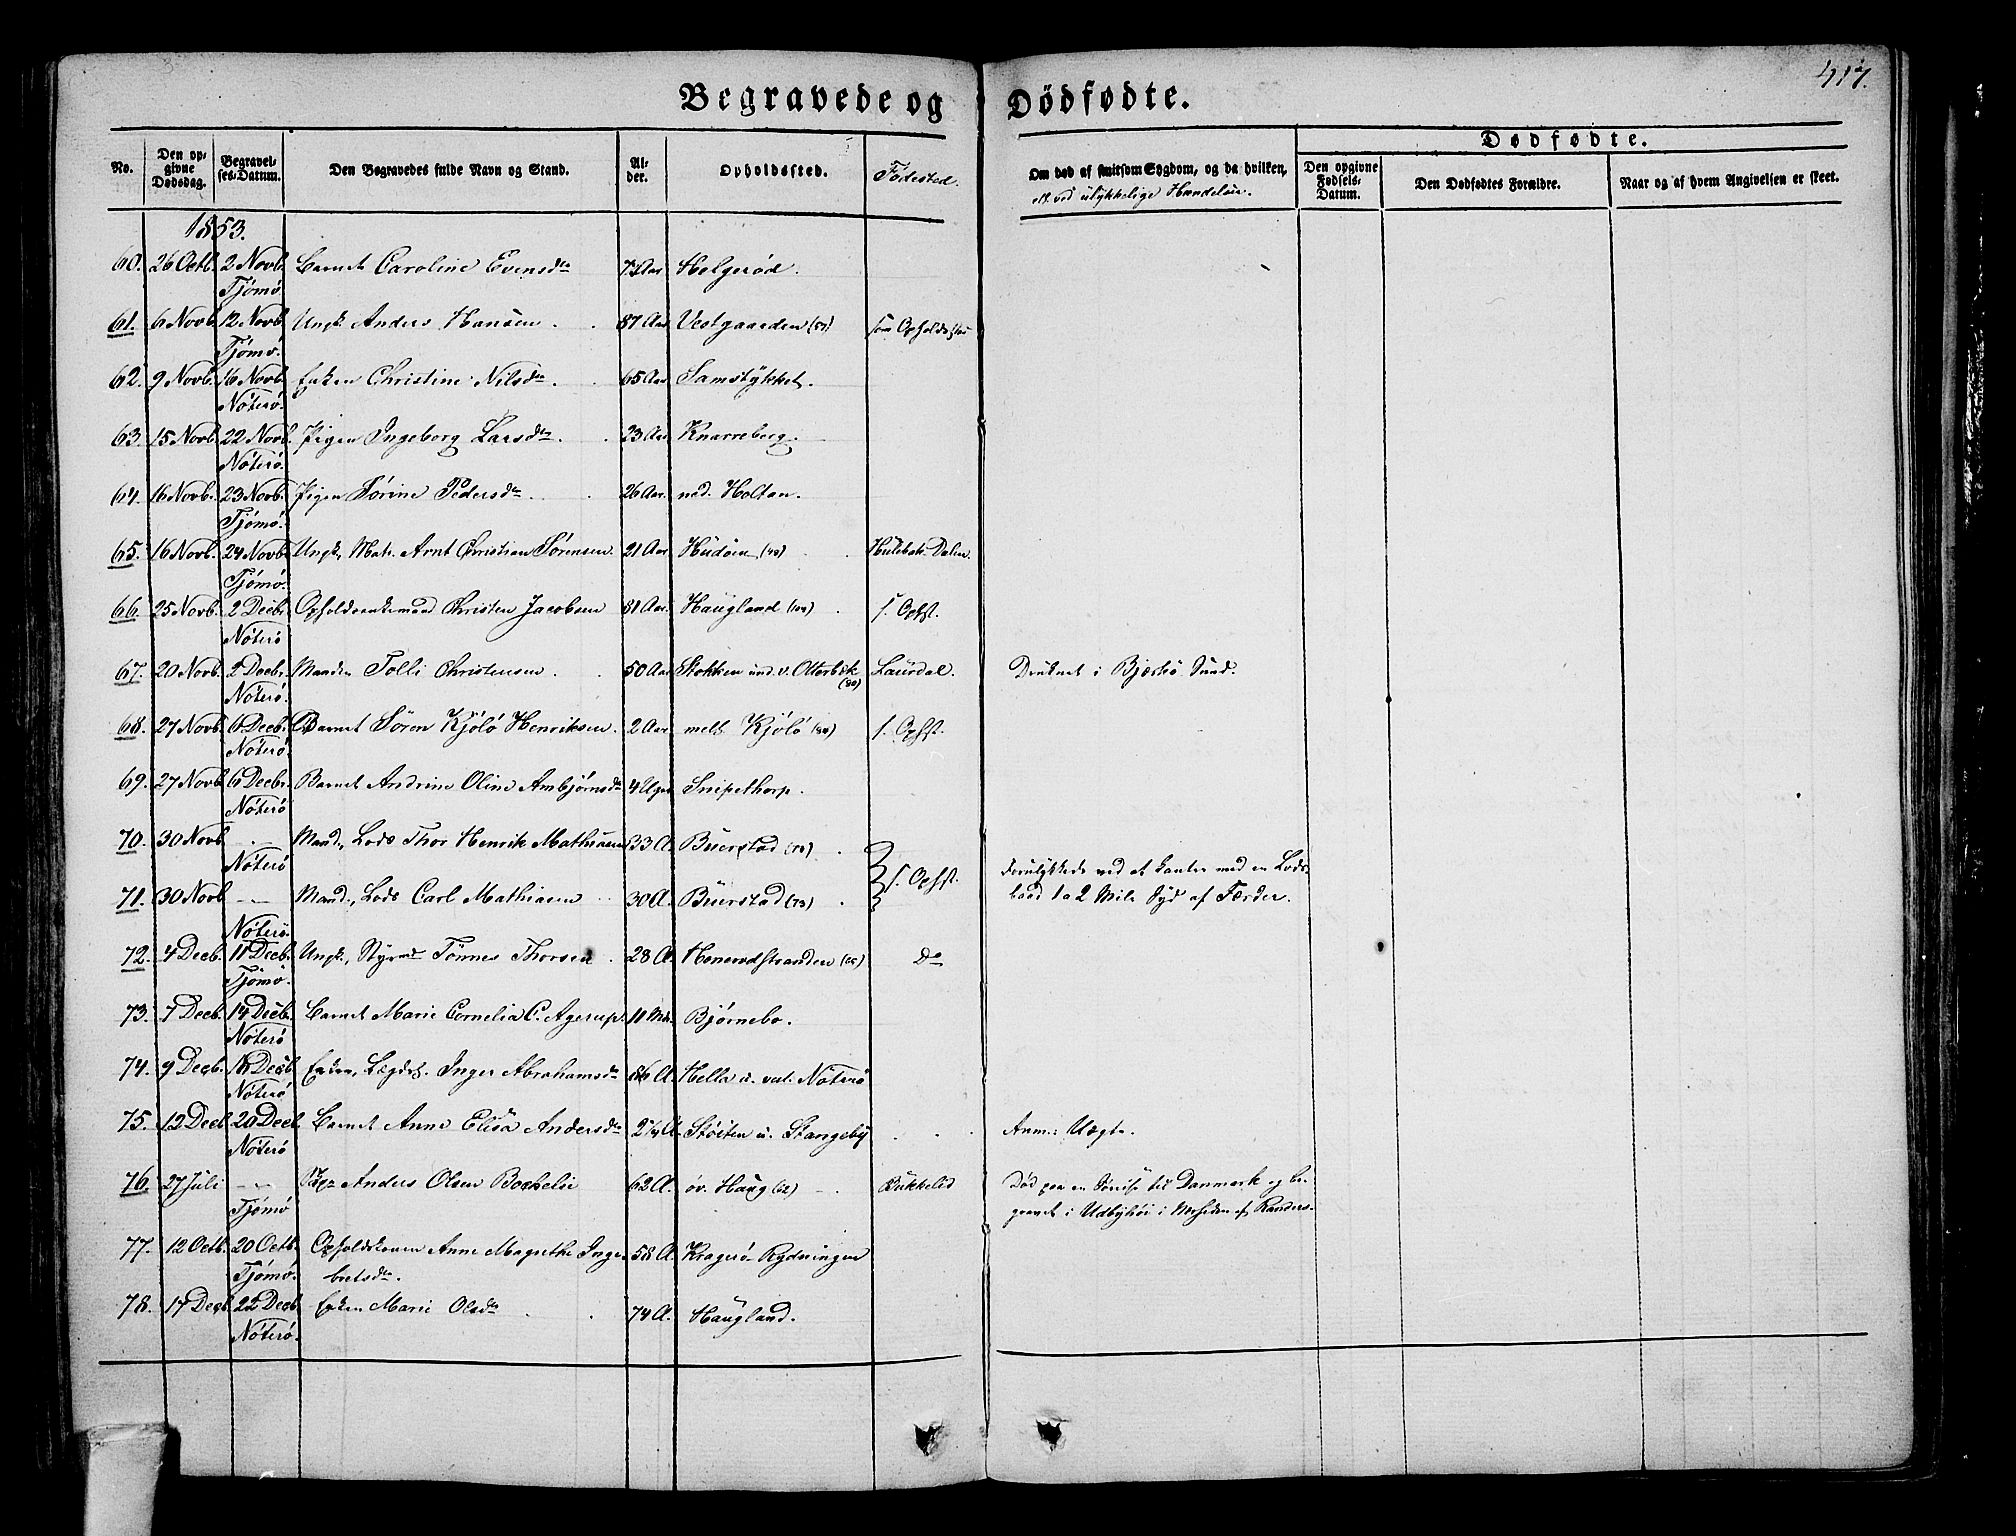 417.
Begravede og Dødfødte.
No.
Den opgivne Dødsdag.
Begravelses-Datum.
Den Begravedes fulde Navn og Stand.
Alder.
Opholdssted.
Fødested.
Om død af smitsom Sygdom, og da hvilken,
ell. ved ulykkelige Hændelser.
Dødfødte.
Den opgivne Fødsels-Datum.
Den Dødfødtes Forældre.
Naar og af hvem Angivelsen er skeet.
1853.
60. 26 Octb. 2 Novb. Barnet Caroline Evensdr Aar Helgerød.
Tjømø.
61. 6 Novb. 12 Novb. Ungk. Anders Hansen. 87 Aar Vestgaarden som Opholdsstad
Tjømø.
62. 9 Novb. 16 Novb. Enken Christine Nilsdr. 65 Aar Samstykket.
Nøterø.
63. 15 Novb. 22 Novb. Pigen Ingeborg Larsdr. 23 Aar Knarreberg.
Nøterø.
64. 16 Novb. 23 Novb. Pigen Sørine Pedersdr. 26 Aar. ned. Holtan.
Tjømø.
65. 16 Novb. 24 Novb. Ungk, Matr. Arnt Christian Sørensen. 21 Aar Hudøen (48) Dalen.
Tjømø.
66. 25 Novb. 2 Decbr Opholdsenkemand Christen Jacobsen 81 Aar. Haugland f. Ophst.
Nøterø
67. 20 Novb. 2 Decbr. Manden Tolli Christensen. 50 Aar Stokken und. v. Otterbek Laurdal. Druknet i Bjerkø Sund.
Nøterø.
68. 27 Novb. 6 Decb. Barnet Søren KjøLø Henriksen. 2 Aar mell. KjøLø f. Ophst.
Nøterø.
69. 27 Novb. 6 Decbr. Barnet Andrine Oline Ambjørnsdr 4 Uger Snipethorp.
Nøterø
70. 30 Novb — Mand, Lods Thor Henrik Mathiasen 33 A. Buerstad (73).
Nøterø
71. 30 Novb — Mand, Lods Carl Mathiasen 30 A. Buerstad (73). f. Ophst. Forulykkede ved at kantre med en Lods-
baad 1 a 2 Mile Syd af Færder.
Nøterø.
72. 4 Decb. 11 Decb. Ungk, Styrmd Tønnes Thorsen. 28 A. Do
Tjømø.
73. 7 Decb. 14 Decb. Barnet Marie Cornelia C. Agerup. 11 Mdr. Bjørnebo.
Nøterø
74. 9 Decb. Decb Enken, Lægdsl. Inger Abrahamsdr 86 A. Hella u. vest. Nøterø
Nøterø
75. 12 Decb 20 Decb. Barnet Anne Elisa Andersdr 2 A. Støiten u. Stangeby Anm: Uægte.
Nøterø
76. 27 Juli — Anders Olsen 62 A. øv. Haug (62) Bukkelid Død paa en Søreise til Danmark og be-
gravet i Udbyhøi i Nærheden af Randers.
Tjømø
77. 12 Octb. 20 Octb. Opholdskonen Anne Magrethe Inge- 58 A. Kragerø Rydningen
bretsdr.
Tjømø.
78. 14 Decb. 22 Decb. Enken Marie Olsdr 74 A. Haugland.
Nøterø.